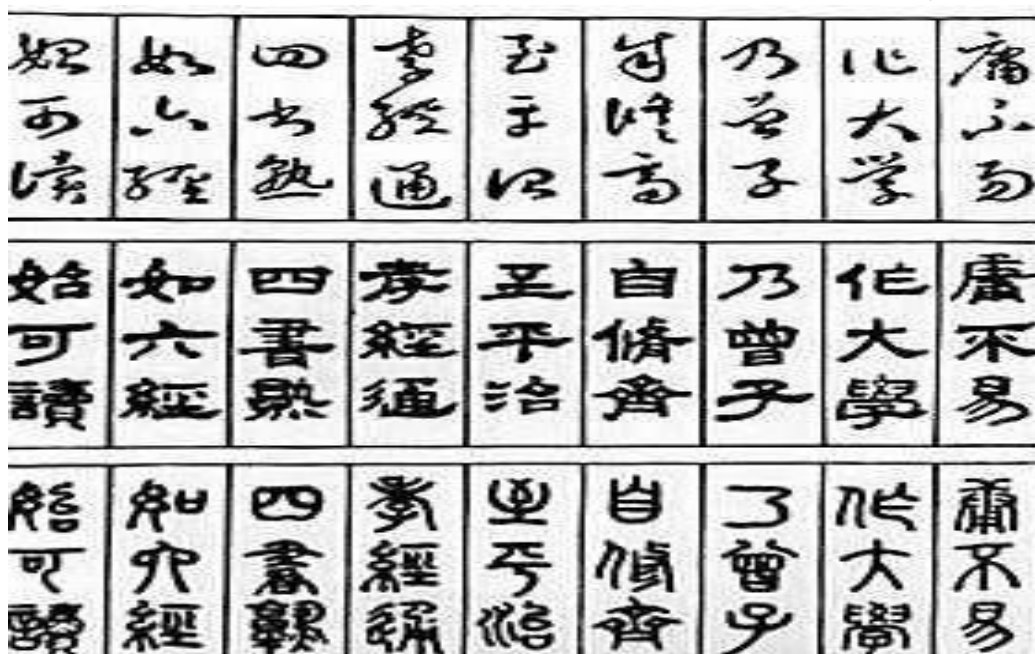 庸不易
作大学
乃曾子
自脩齊
至平治
孝經通
四书熟
如六經
始可讀
庸不易
作大學
乃曾子
自脩齊
至平治
孝經通
四書熟
如六經
始可讀
庸不易
作大學
乃曾子
自修齊
至平治
孝經通
四書孰
如六經
始可讀